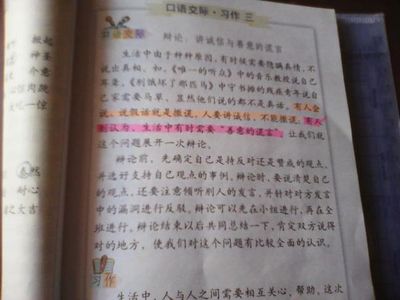 口语交际·习作三
口语交际
辩论：讲诚信与善意的谎言
生活中由于种种原因，有时候需要隐瞒真情，不
说出真相。如，《唯一的听众》中的音乐教授说自己
耳聋，《别饿坏了那匹马》中守书摊的残疾青年说自
己家需要马草，显然他们说的都不是真话。有人会
说，说假话就是撒谎，人要讲诚信，不能撒谎；有人
则认为，生活中有时需要“善意的谎言”。让我们就
这个问题展开一次辩论。
辩论前，先确定自己是持反对还是赞成的观点，
并选好支持自己观点的事例。辩论时，要说清楚自己
的观点，还要注意倾听别人的发言，并针对对方发言
中的漏洞进行反驳。辩论可以先在小组进行，再在全
班进行。辩论结束以后共同总结一下，肯定双方说得
对的地方，使我们对这个问题有比较全面的认识。
习作
生活中，人与人之间需要相互关心、帮助，这次
神圣
介意
大吃一惊
泰然
耐心